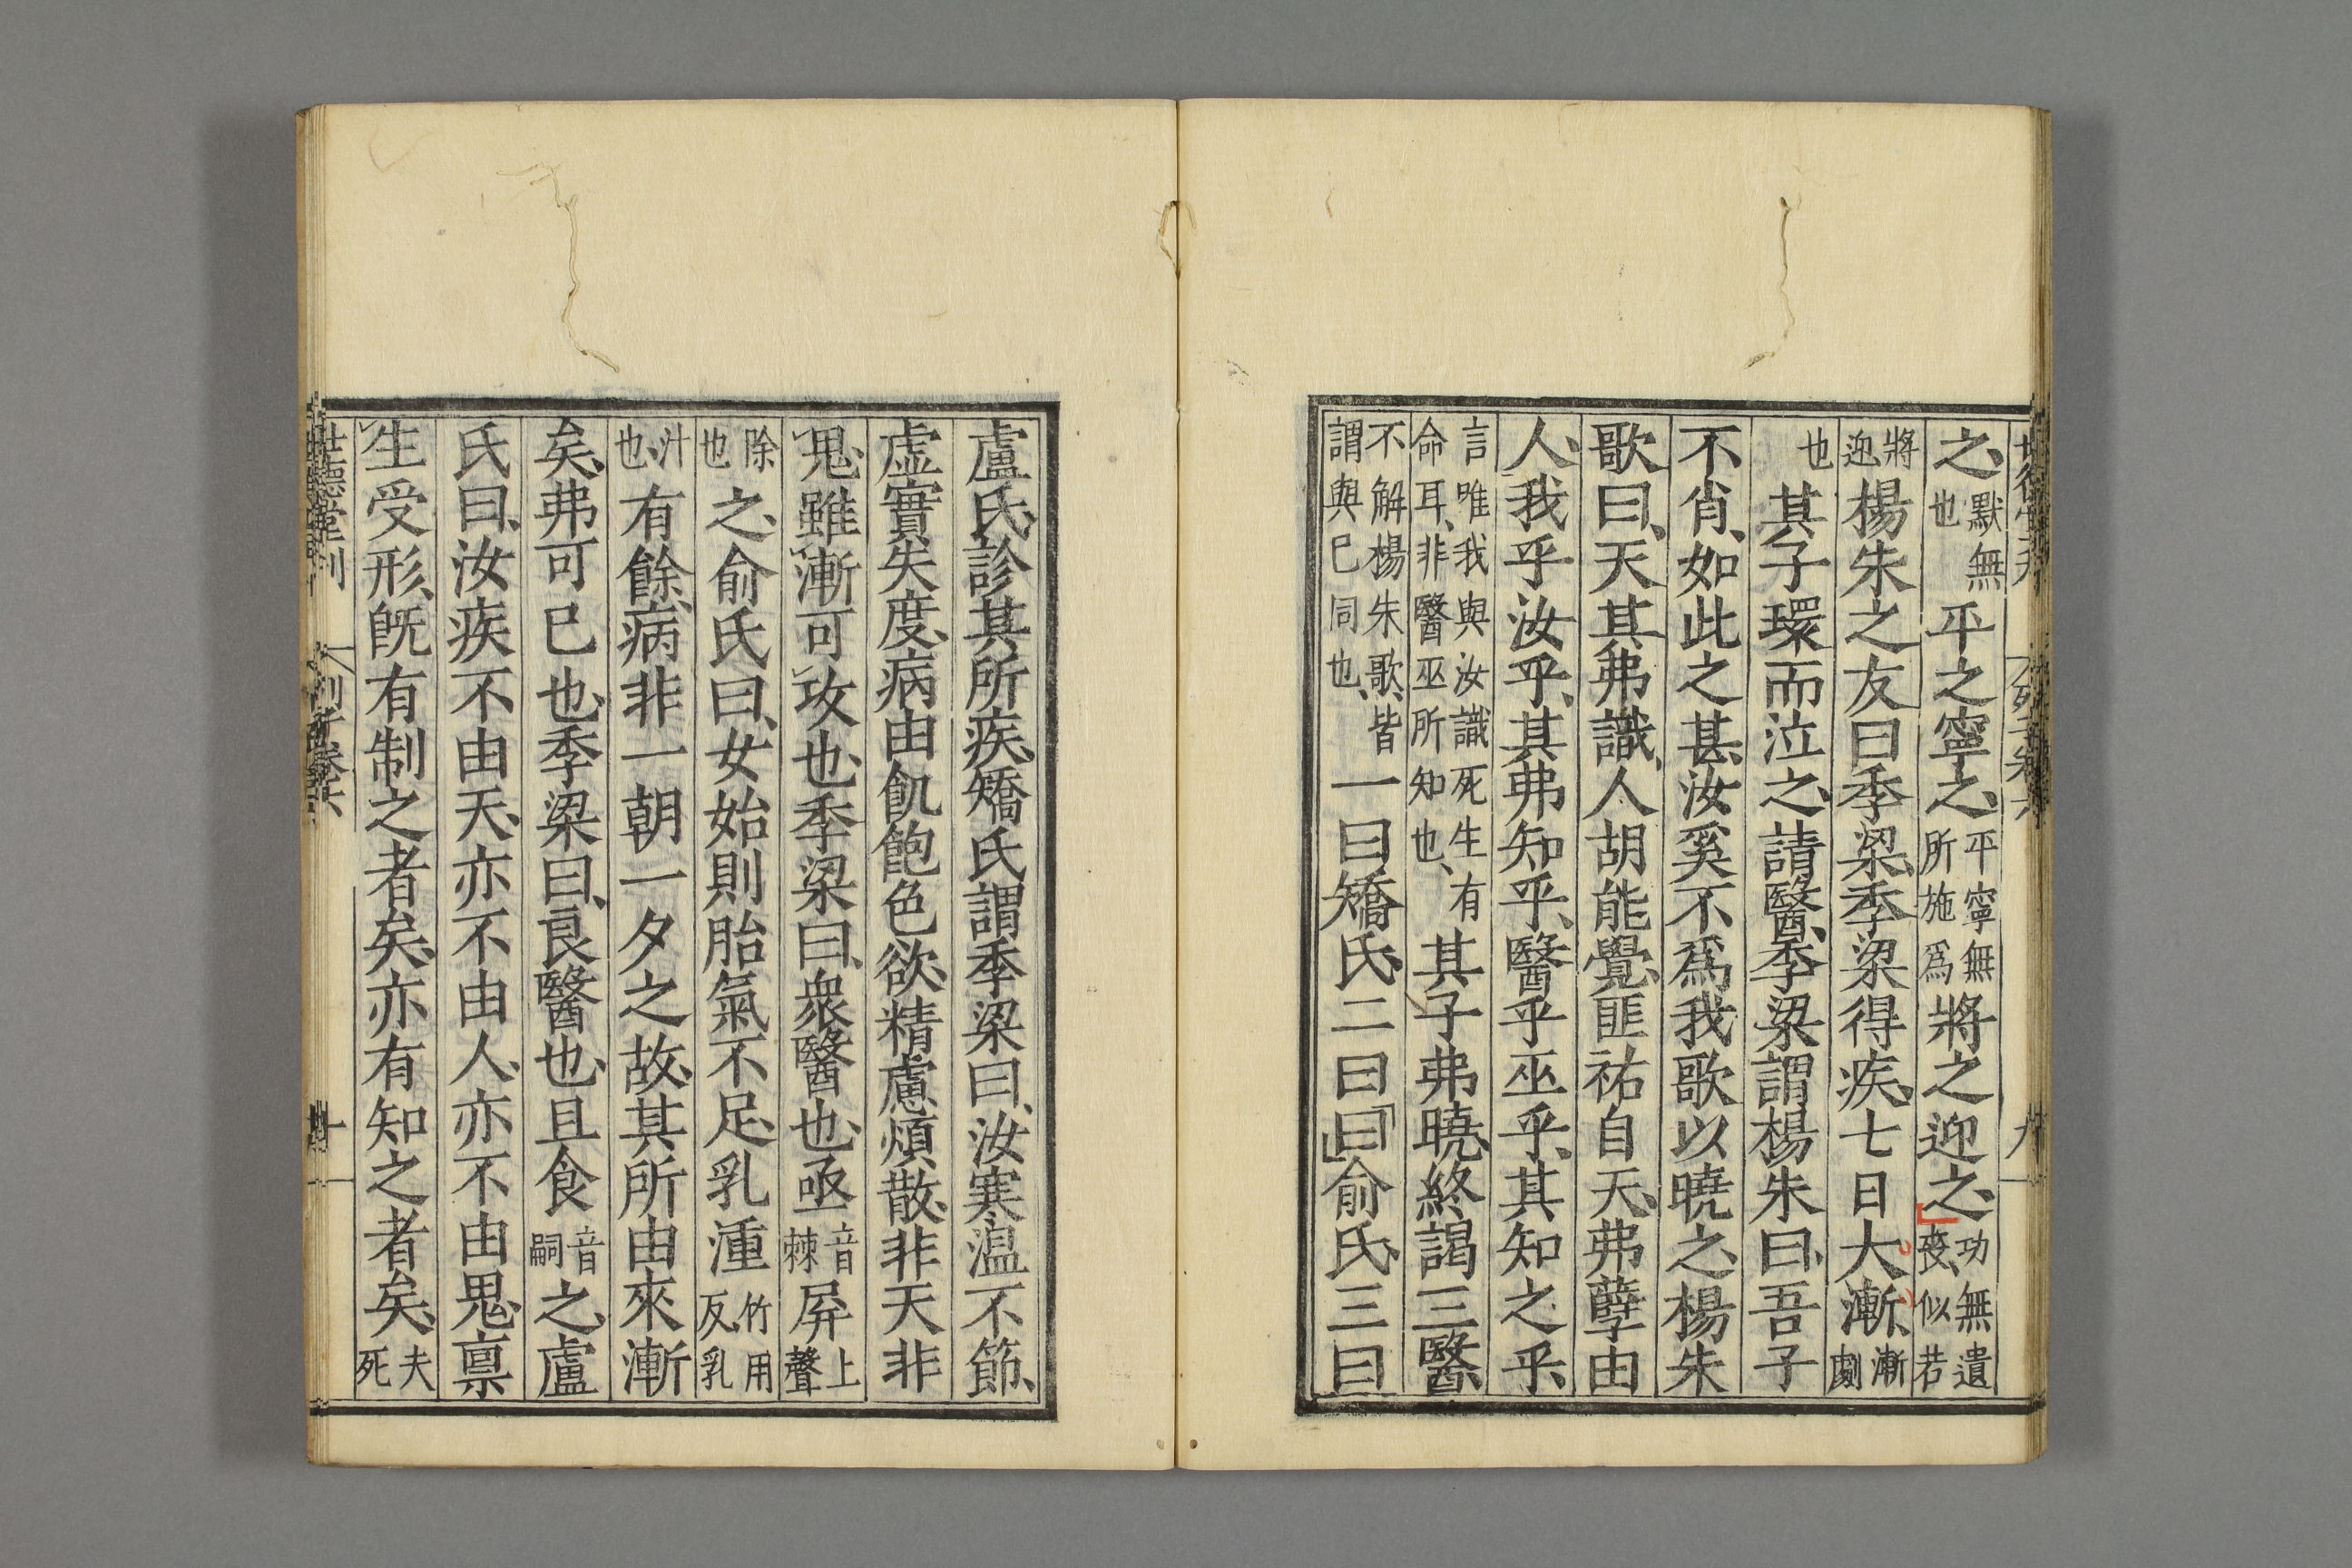 之、默無也平之寧之、平寧無所施爲將之迎之、功無遺喪、似若
將迎楊朱之友曰季梁、季梁得疾、七日大漸、漸劇
也其子環而泣之、請醫、季梁謂楊朱曰、吾子
不肖、如此之甚、汝奚不爲我歌以曉之、楊朱
歌曰、天其弗識、人胡能覺、匪祐自天、弗孽由
人、我乎汝乎、其弗知乎、醫乎巫乎、其知之乎、
言唯我與汝識死生有命耳、非醫巫所知也、其子弗曉、終謁三醫、
不解楊朱歌、皆謂與巳同也、一曰矯氏、二曰曰俞氏、三曰
盧氏、診其所疾、矯氏謂季梁曰、汝寒溫不節、
虛實失度、病由飢飽色欲、精慮煩散、非天非
鬼、雖漸可攻也、季梁曰、衆醫也、亟音棘屛上聲
除也之、俞氏曰、女始則胎氣不足、乳湩竹用反、乳
汁也、有餘、病非一朝一夕之故、其所由來漸
矣、弗可巳也、季梁曰、良醫也、且食音嗣之、盧
氏曰、汝疾不由天、亦不由人、亦不由鬼、禀
生受形、旣有制之者矣、亦有知之者矣、夫死
世德堂刊